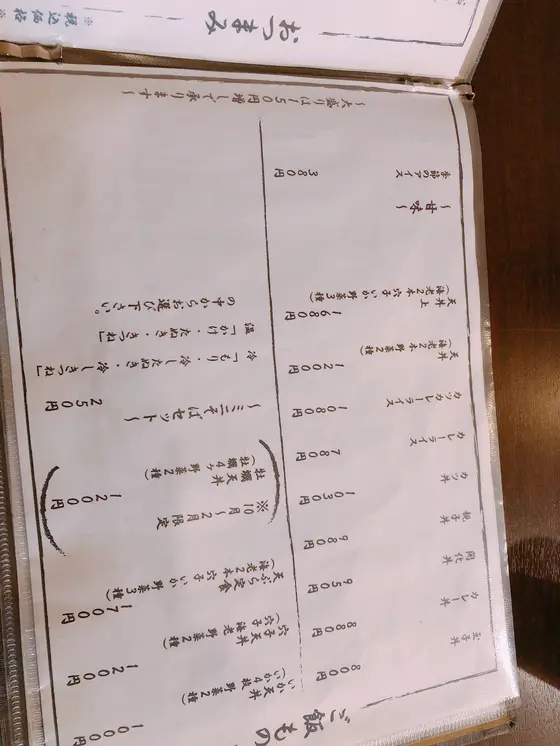 ご飯もの
玉子丼 800円
カレー丼 880円
開化丼 950円
親子丼 980円
カツ丼 1030円
カレーライス 780円
カツカレーライス 1080円
天丼 1200円
(海老2本 野菜2種)
天丼上 1680円
(海老2本 穴子 いか 野菜3種)
~甘味~
季節のアイス 380円
いか天丼 1000円
(いか4枚 野菜2種)
穴子天丼 1200円
(穴子 海老 野菜2種)
天ぷら定食 1700円
(海老2本 穴子 いか 野菜3種)
※10月~2月限定
牡蠣天丼 1200円
(牡蠣4ヶ 野菜2種)
~ミニそばセット~
250円
冷「もり・冷したぬき・冷しきつね」
温「かけ・たぬき・きつね」
の中からお選び下さい。
~大盛りは150円増しで承ります~
おつまみ
※税込価格※